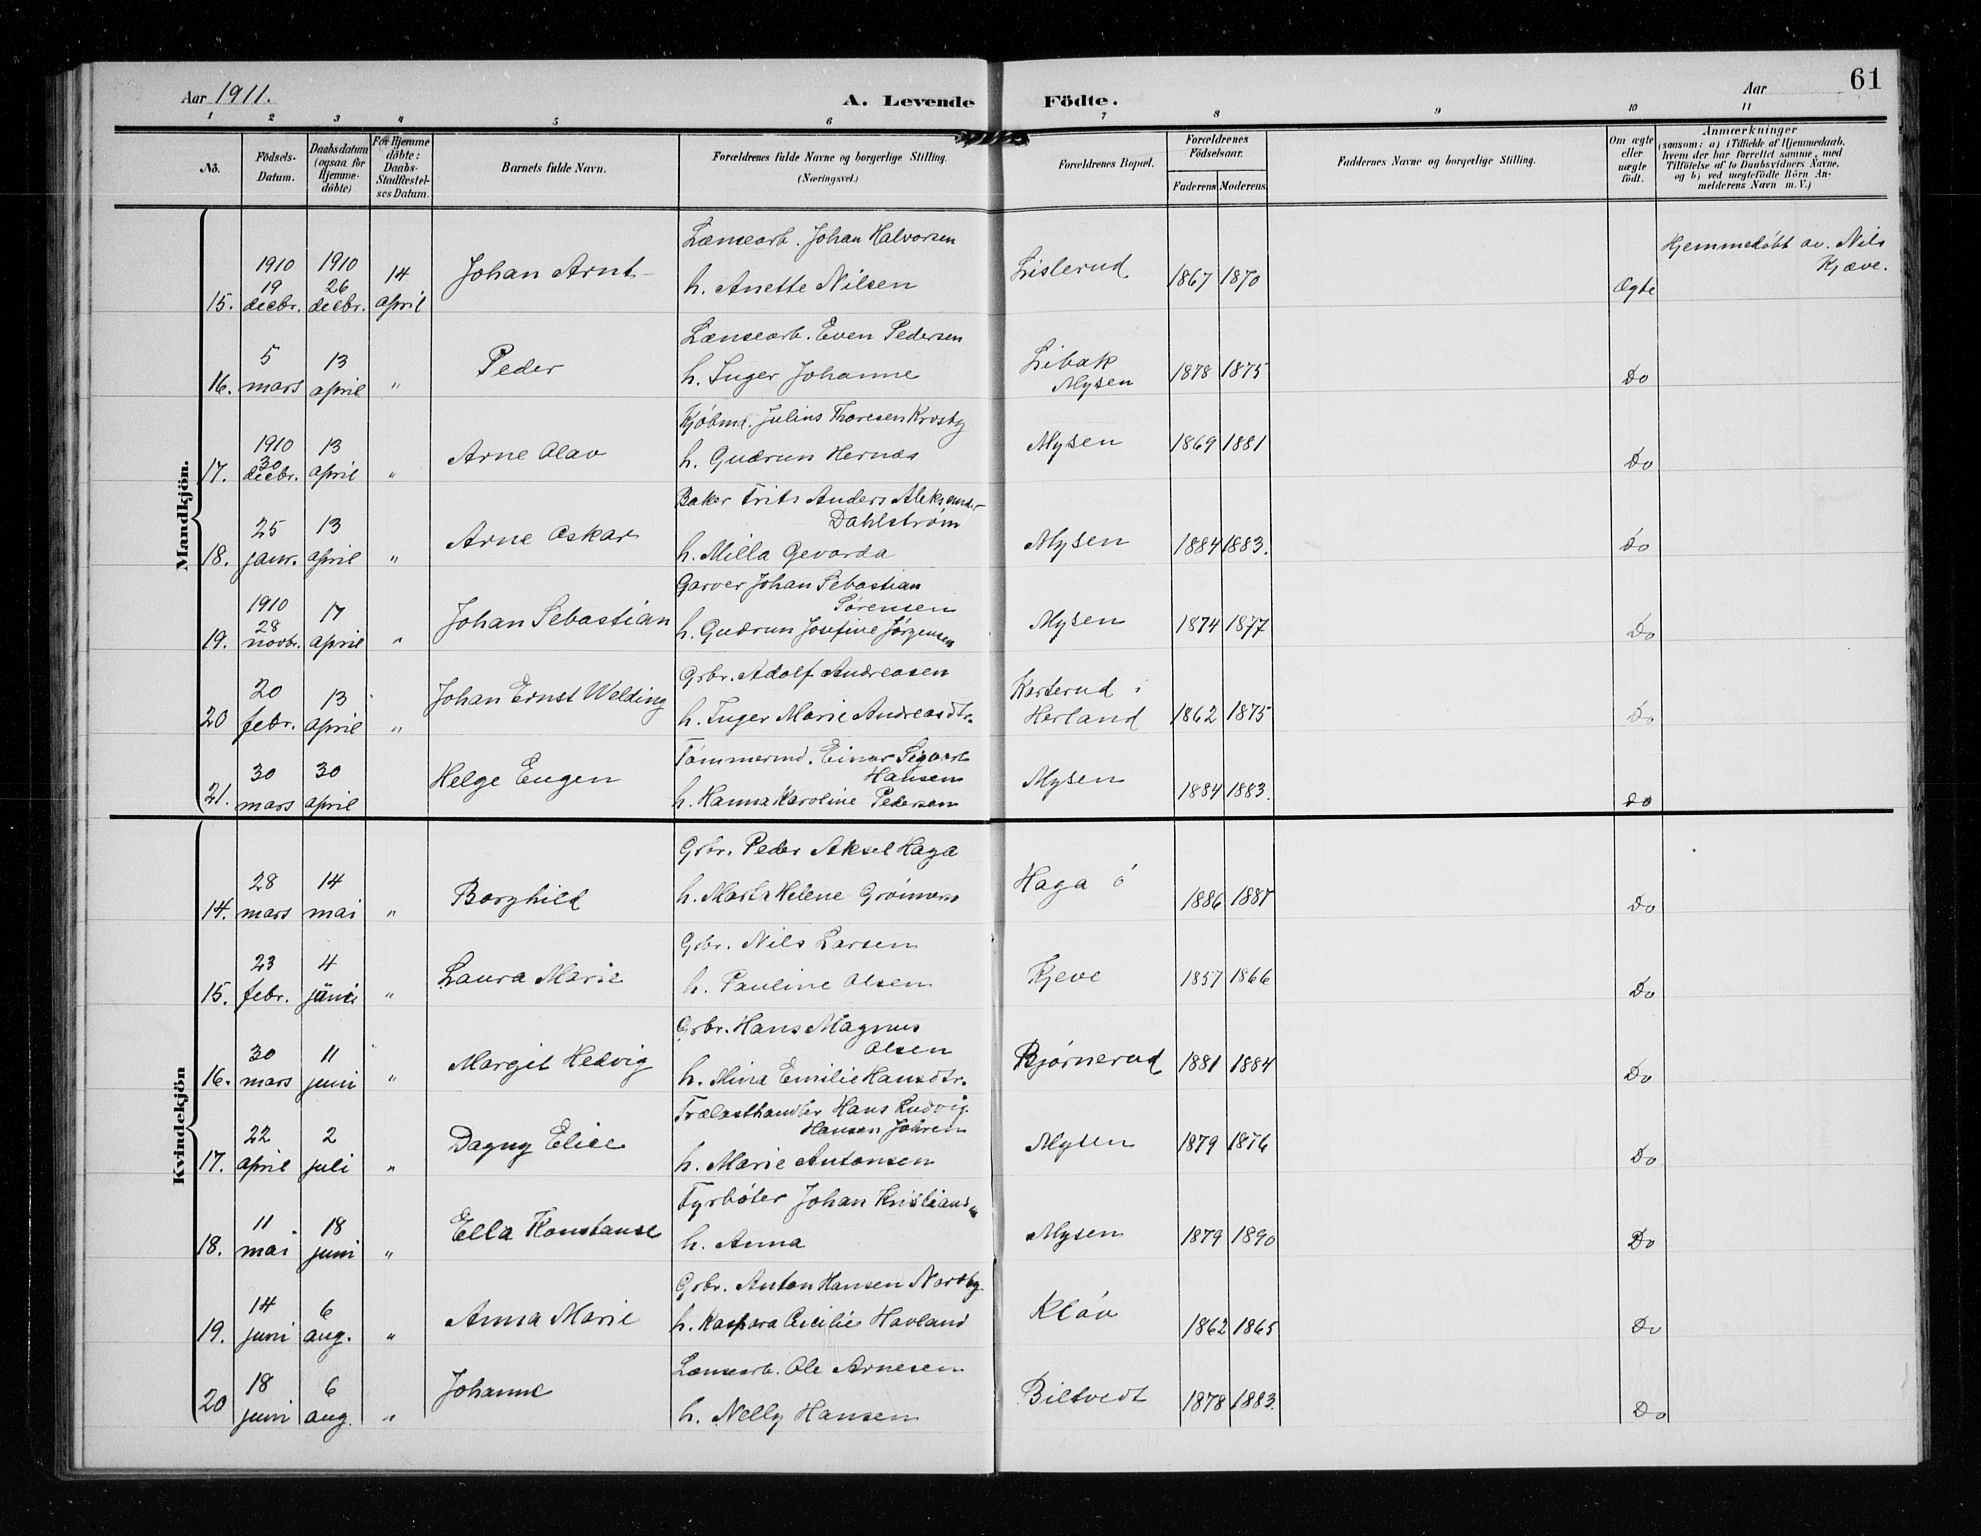 Aar 1911. A. Levende Födte. Aar 61
1 2 3 4 5 6 7 8 9 10 11
No. Födsels-Datum. Daabsdatum (ogsaa for Hjemme-döbte) For Hjemme döbte: Daabs-Stadfæstel-ses Datum. Barnets fulde Navn. Forældrenes fulde Navne og borgerlige Stilling. (Næringsvei.) Forældrenes Bopæl. Forældrenes Födselsaar. Faderens Moderens Faddernes Navne og borgerlige Stilling. Om ægte eller uægte födt. Anmærkninger (saasom: a) i Tilfælde af Hjemmedaab, hvem der har forrettet samme, med Tilföielse af to Daabsvidners Navne, og b) ved uægtefödte Börn An-melderens Navn m. V.)
Mandkjön.
15. 1910 19 decbr. 1910 26 decbr. 14 april Johan Arnt Lænsearb. Johan Halvorsen
h. Anette Nilsen Lislerud 1867 1870 Ægte Hjemmedöbt av. Nils Kjæve.
16. 5 mars 13 april " Peder Lænsearb. Even Pedersen
h. Inger Johanne Libak Mysen 1878 1875 Do
17. 1910 30 decbr. 13 april " Arne Olav Kjøbmd. Julius Thoresen Krosby
h. Gudrun Hernæs Mysen 1869 1881 Do
18. 25 janr. 13 april " Arne Oskar Baker Frits Anders Aleksander
Dahlstrøm
h. Milla Gevarda Mysen 1884 1883. Do
19. 1910 28 novbr. 17 april " Johan Sebastian Garver Johan Sebastian
Sørensen
h. Gudrun Josefine Jørgensen Mysen 1874 1877 Do
20 20 febr. 13 april " Johan Ernst Welding Grbr. Adolf Andreasen
h. Inger Marie Andreasdtr. Karterud i Herland 1862 1875 Do
21. 30 mars 30 april Helge Eugen Tømmermd. Einar Sigvart
Hansen
h. Hanna Karoline Pedersen Mysen 1884 1883. do
Kvindekjön
14. 28 mars 14 mai " Borghild Grbr. Peder Aksel Haga
h. Marta Helene Haga ö 1886 1887 Do
15. 23 febr. 4 juni " Laura Marie Grbr. Nils Larsen
h. Pauline Olsen Kjeve 1857 1866 Do
16. 30 mars 11 juni " Margit Hedvig Grbr. Hans Magnus
Olsen
h. Mina Emilie Hansdtr. Bjørnerud 1881 1884 Do
17. 22 april 2 juli " Dagny Elise Trælasthandler Hans Ludvig
Hansen Jahren
h. Marie Antonsen Mysen 1879 1876 Do
18. 11 mai 18 juni " Ella Konstanse Fyrbøter Johan Kristiansen
h. Anna Mysen 1879 1890 Do
19. 14 juni 6 aug. " Anna Marie Grbr. Anton Hansen Nordby
h. Kaspara Cicilie Havland Kløv 1862 1865 Do
20 18 juni 6 aug. " Johanne Lænsearb. Ole Arnesen
h. Nelly Hansen Biltvedt 1878 1883. Do